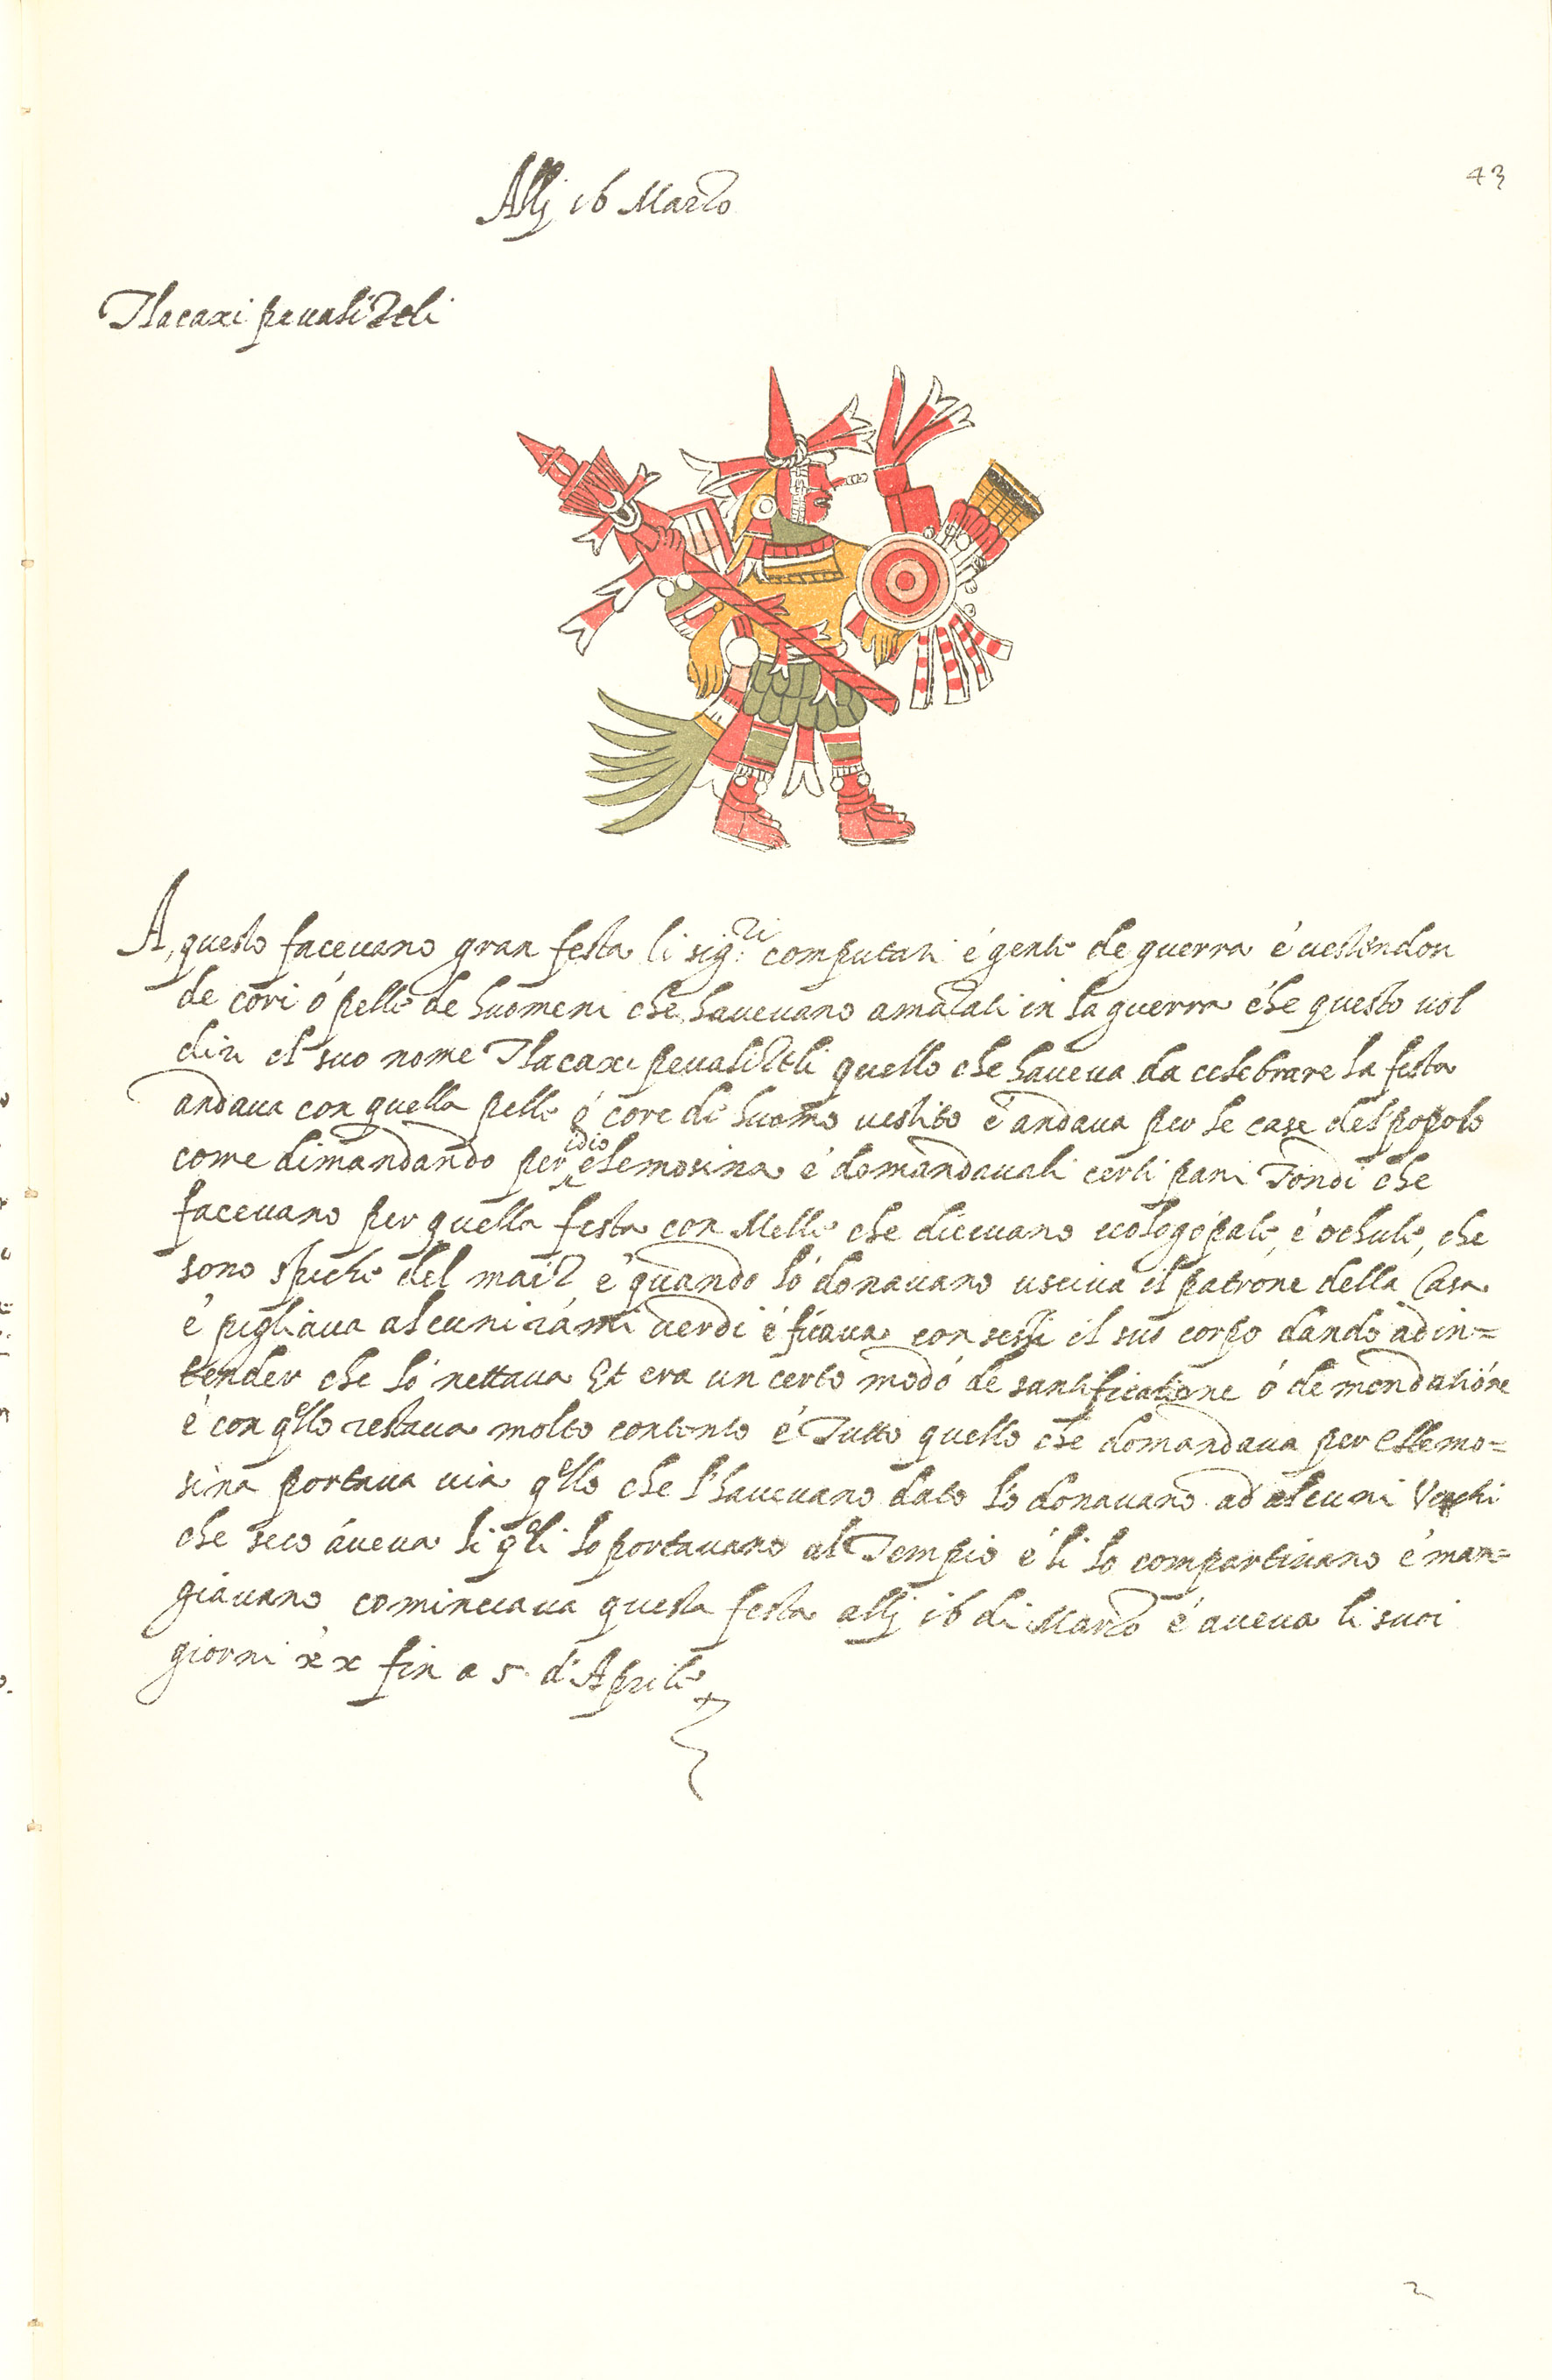 43
Allj 16 Marzo
Tlacaxi peualiztli
A, questo faceuano gran festa li sig.ri computati é gente de guerra é uestendon
de cori ó pelle de huomeni che haueuano amazati in la guerra che questo uol
dir el suo nome Tlacaxipeualiztli quello che haueua da celebrare la festa
andaua con quella pelle ó core de huomo uestito é andaua per le case del popolo
come dimandando per idio elemosina é domandauali certi pani Tondi che
faceuano per quella festa con Melle che diceuano é ochule, che
sono spiche del maiz é quando ló donauano usciua il patrone della Casa
é pigliaua alcuni rámi uerdi é con essi il suo corpo dando ad in=
tender che ló nettaua Et era un certo modó de santificatione ó de mondatióne
é con q̃llo restaua molto contento é Tutto quello che domandaua per ellemo=
sina portaua uia q̃llo che l'haueuano dato ló donauano ad alcuni Vechi
che seco áueua li q̃li lo portauano al Tempio é li lo compartiuano é man=
giáuano comінciaua questa festa allj 16 di Marzo é aueua li suoi
giorni xx fin a 5. d'Aprile